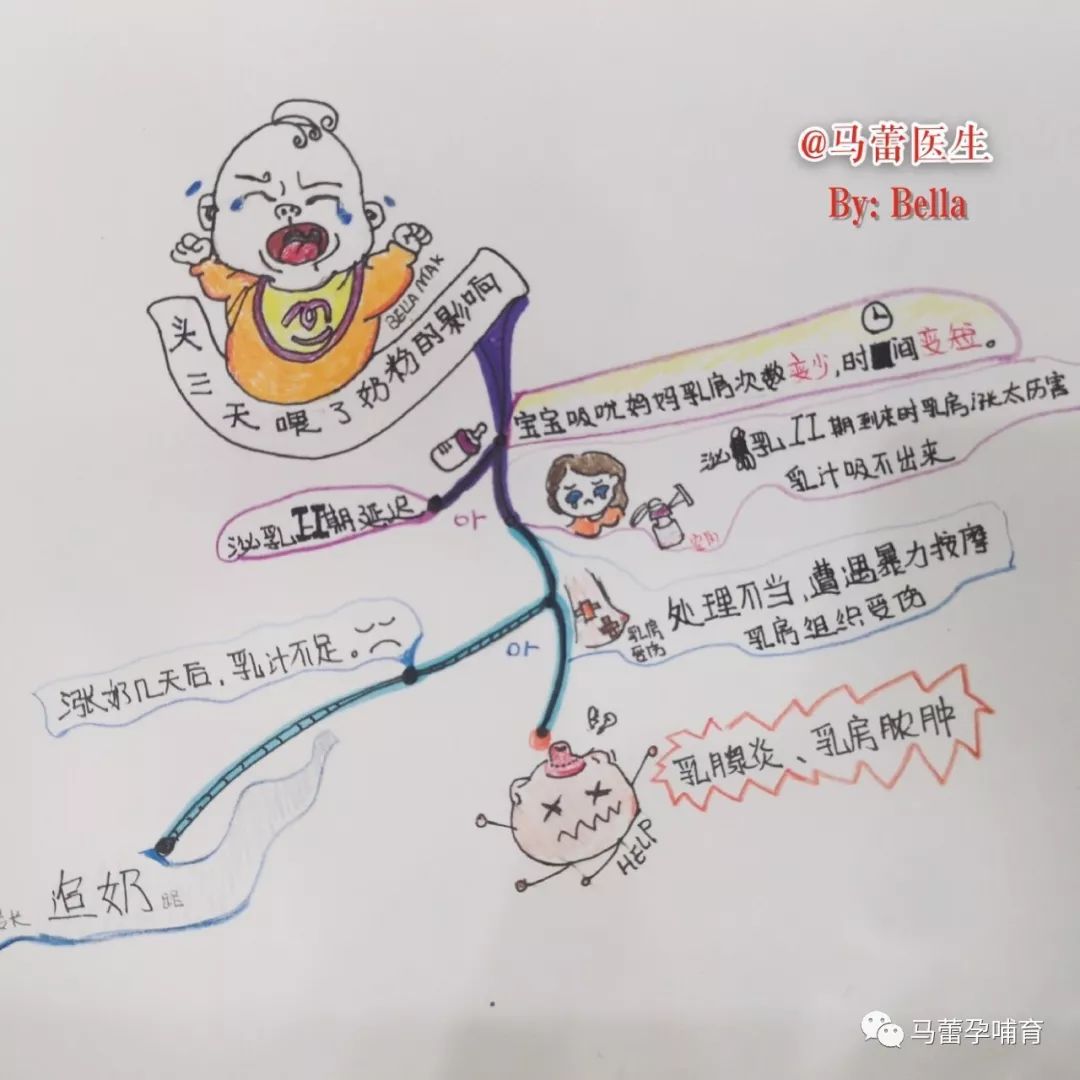 @马蕾医生
By: Bella
BELLA MAK
头三天喂了奶粉的影响
宝宝吸吮妈妈乳房次数变少,时间变短。
泌乳II期到来时乳房涨太历害
乳汁吸不出来
泌乳II期延迟
or
处理不当,遭遇暴力按摩
乳房组织受伤
乳房
受伤
or
涨奶几天后,乳汁不足。
乳腺炎、乳房脓肿
HELP
追奶
马蕾孕哺育